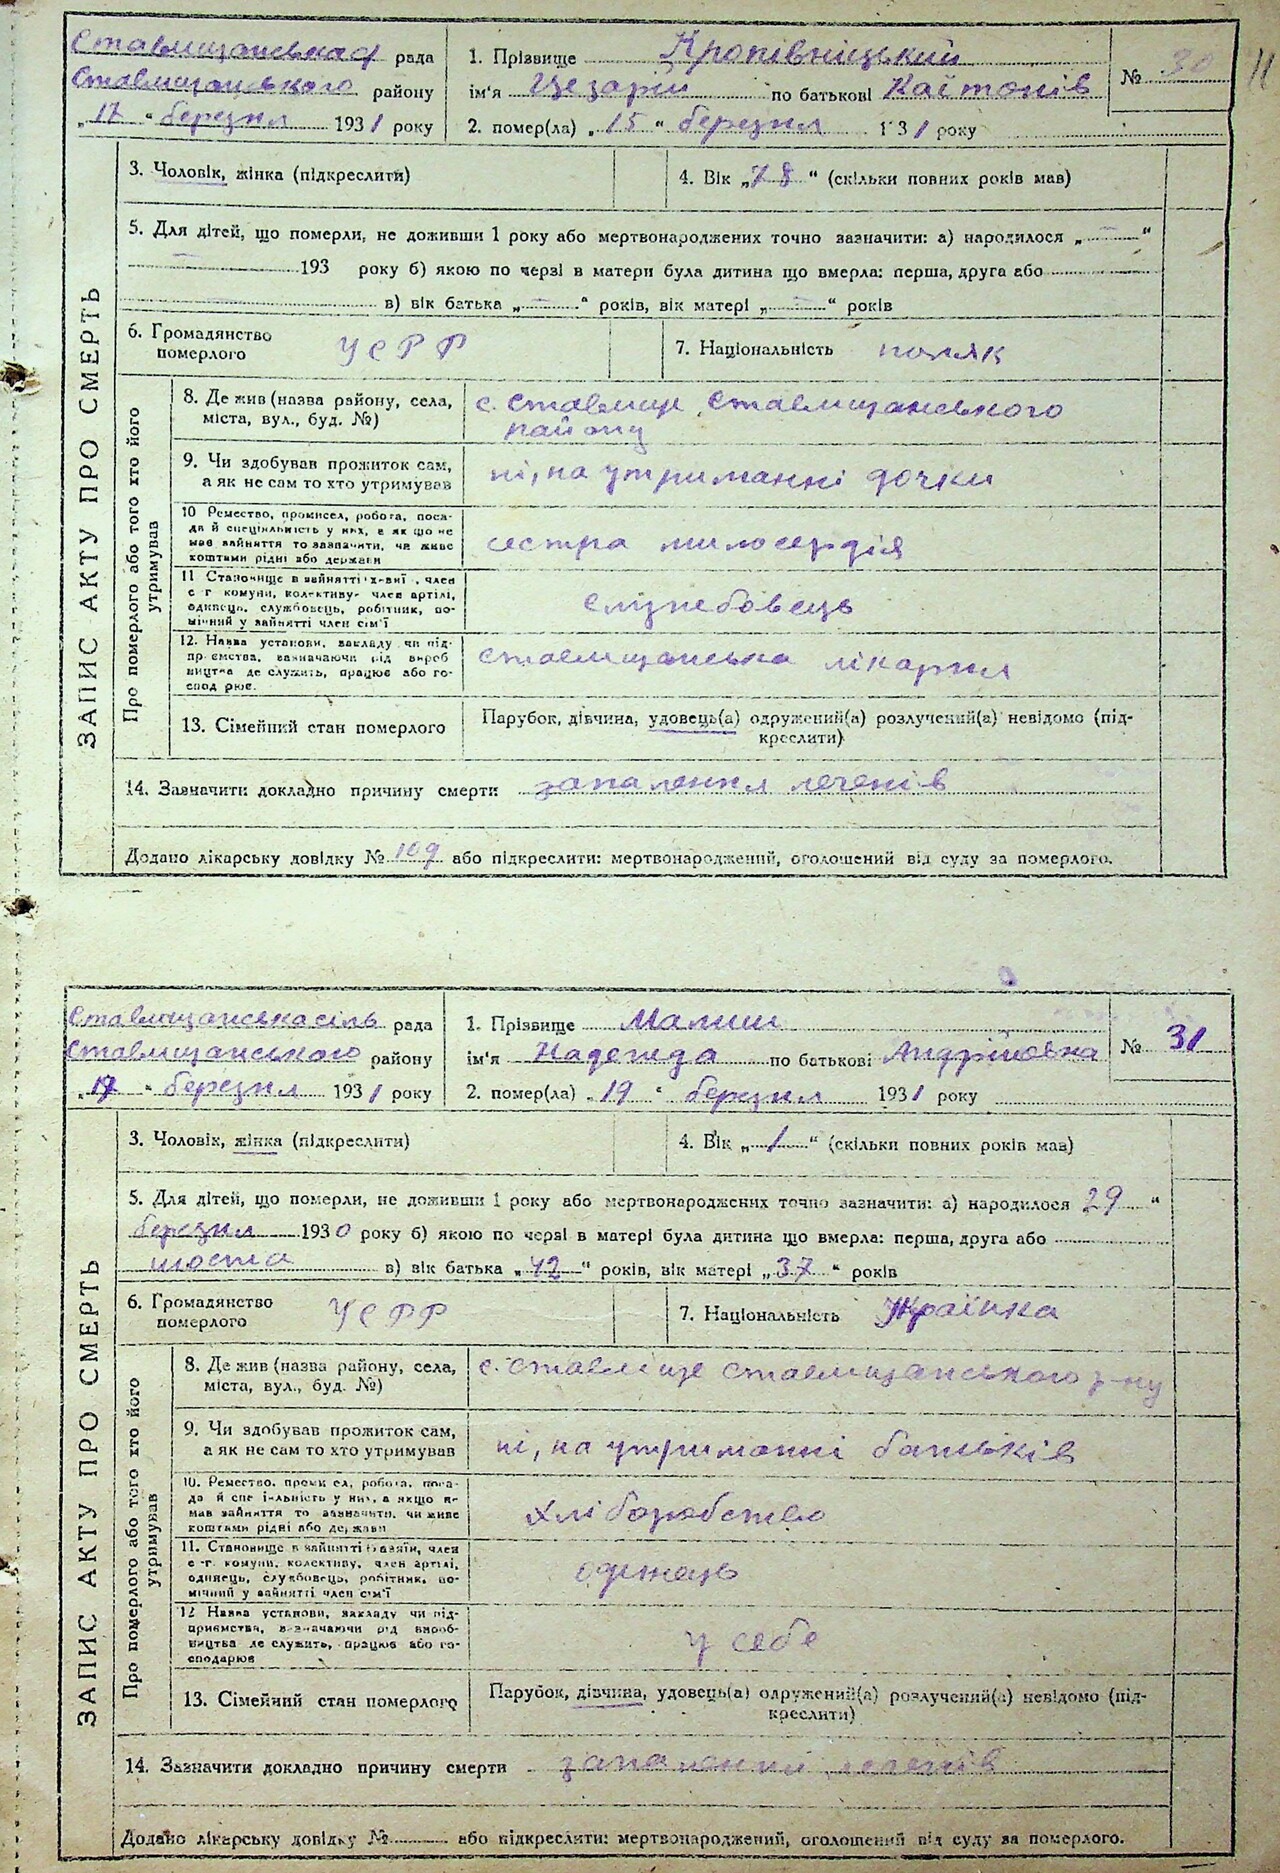 Ставищанська рада
Ставищанського району
„17" березня 1931 року
1. Прізвище Кропівніцький
ім'я Цезарій по батькові Кайтонів
2. помер(ла) „15" березня 1931 року
№ 30
11
ЗАПИС АКТУ ПРО СМЕРТЬ
3. Чоловік, жінка (підкреслити)
4. Вік „78" (скільки повних років мав)
5. Для дітей, що померли, не доживши 1 року або мертвонароджених точно зазначити: а) народилося „—"
— 193 року б) якою по черзі в матери була дитина що вмерла: перша, друга або
в) вік батька „—" років, вік матері „—" років
6. Громадянство
померлого
УСРР
7. Національність поляк
Про померлого або того хто його
утримував
8. Де жив (назва району, села,
міста, вул., буд. №)
с. Ставище, Ставищанського
району
9. Чи здобував прожиток сам,
а як не сам то хто утримував
ні, на утриманні дочки
10 Ремество, промисел, робота, поса-
да й спеціяльність у них, а як що не
мав зайняття то зазначити, чи живе
коштами рідні або держави
сестра милосердія
11 Становище в зайнятті член
с г комуни, колективу, член артілі,
одинець, службовець, робітник, по-
мічний у зайнятті член сім'ї
службовець
12. Назва установи, закладу чи під-
приємства, зазначаючи рід вироб
ництва де служить, працює або го-
спод рює.
Ставищанська лікарня
13. Сімейний стан померлого
Парубок, дівчина, удовець(а) одружений(а) розлучений(а) невідомо (під-
креслити)
14. Зазначити докладно причину смерти запалення легенів
Додано лікарську довідку № 109 або підкреслити: мертвонароджений, оголошений від суду за померлого.
Ставищанська сіль рада
Ставищанського району
„17" березня 1931 року
1. Прізвище Малиш
ім'я Надежда по батькові Андрійовна
2. помер(ла) „19" березня 1931 року
№ 31
ЗАПИС АКТУ ПРО СМЕРТЬ
3. Чоловік, жінка (підкреслити)
4. Вік „1" (скільки повних років мав)
5. Для дітей, що померли, не доживши 1 року або мертвонароджених точно зазначити: а) народилося 29"
березня 1930 року б) якою по черзі в матері була дитина що вмерла: перша, друга або
шоста в) вік батька „42" років, вік матері „37" років
6. Громадянство
померлого
УСРР
7. Національність Українка
Про померлого або того хто його
утримував
8. Де жив (назва району, села,
міста, вул., буд. №)
с. Ставище Ставищанського р-ну
9. Чи здобував прожиток сам,
а як не сам то хто утримував
ні, на утриманні батьків
10. Ремество, промисел, робота, поса-
да й спеціяльність у них, а якщо не
мав зайняття то зазначити, чи живе
коштами рідні або держави
хліборобство
11. Становище в зайнятті член
с-г. комуни, колективу, член артілі,
одинець, службовець, робітник, по-
мічний у зайнятті член сім'ї
одинець
12 Назва установи, закладу чи під-
приємства, зазначаючи рід вироб-
ництва де служить, працює або го-
сподарює
у себе
13. Сімейний стан померлого
Парубок, дівчина, удовець(а) одружений(а) розлучений(а) невідомо (під-
креслити)
14. Зазначити докладно причину смерти запалення легенів
Додано лікарську довідку № або підкреслити: мертвонароджений, оголошений від суду за померлого.